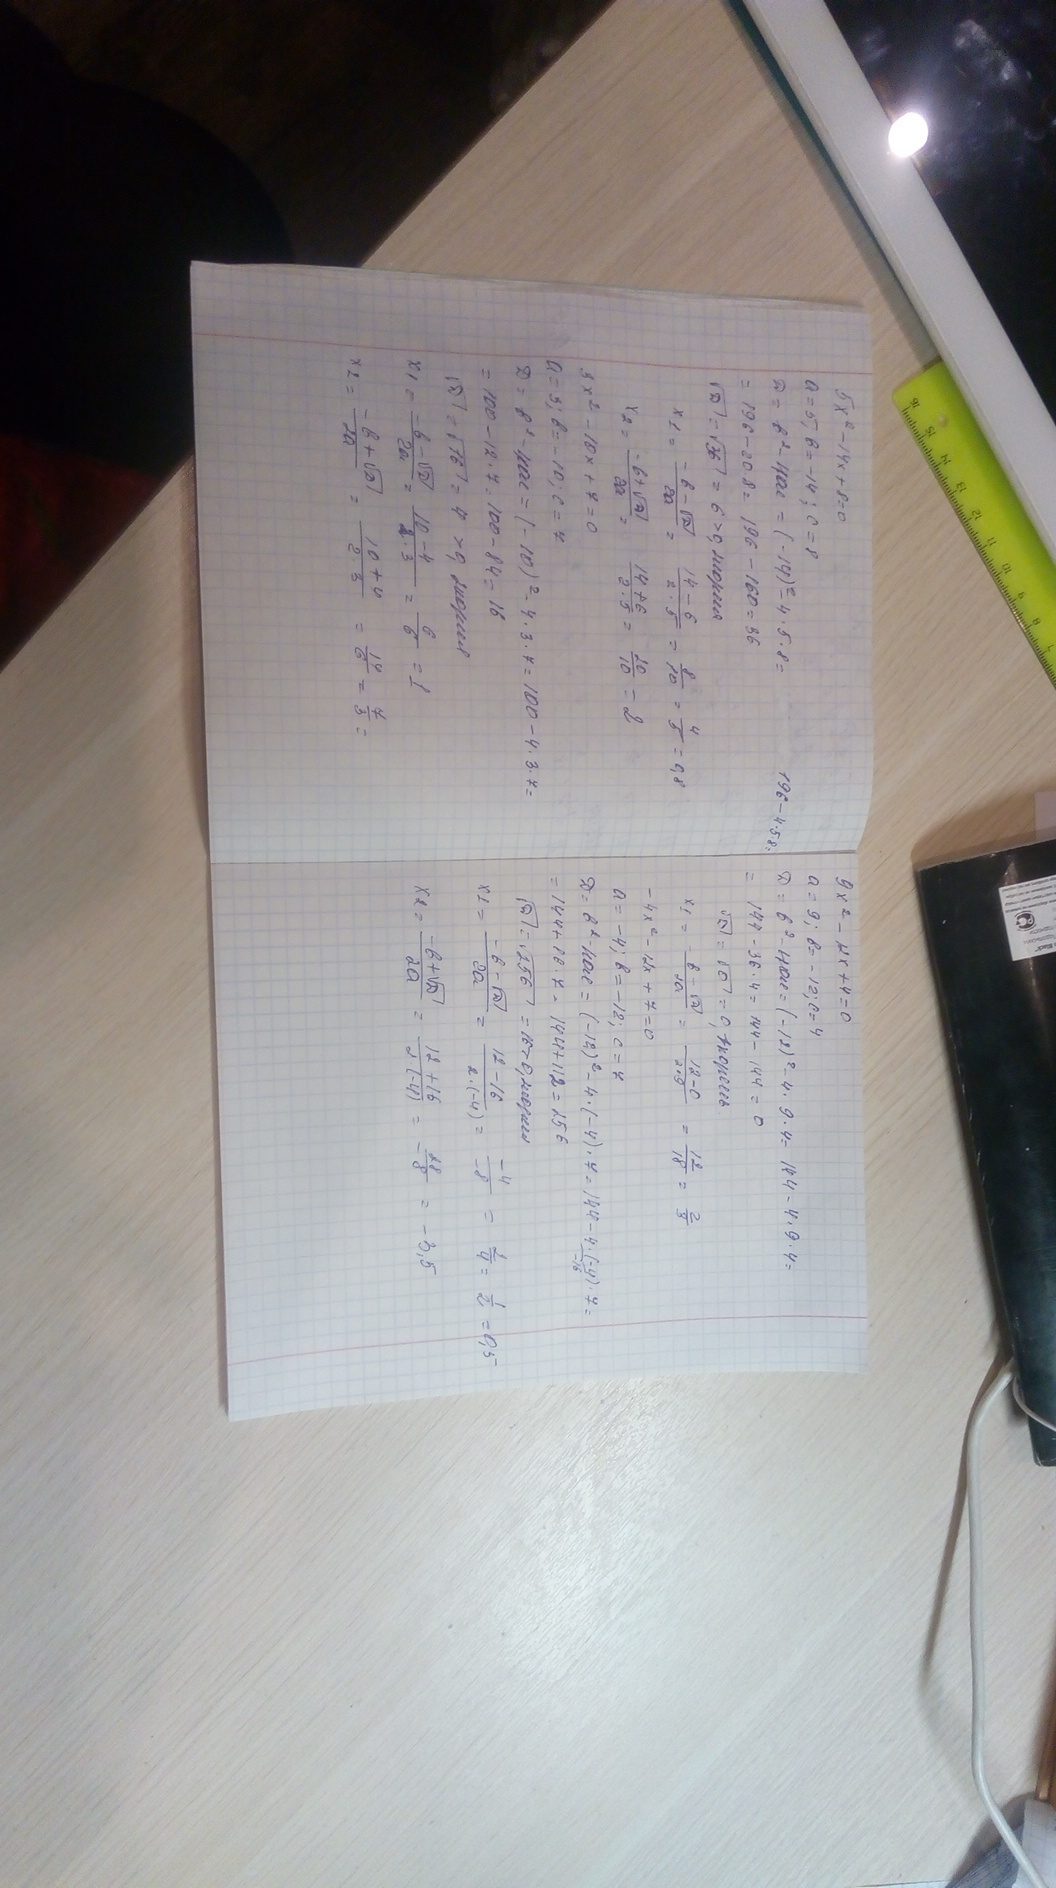 5x² - 14x + 8 = 0
a = 5; b = -14; c = 8
D = b² - 4ac = (-14)² - 4·5·8 =
196 - 4·5·8 =
= 196 - 20·8 = 196 - 160 = 36
√D = √36 = 6 > 0, 2 корня
x1 = (-b - √D)/2a = (14 - 6)/(2·5) = 8/10 = 4/5 = 0,8
x2 = (-b + √D)/2a = (14 + 6)/(2·5) = 20/10 = 2
3x² - 10x + 7 = 0
a = 3; b = -10; c = 7
D = b² - 4ac = (-10)² - 4·3·7 = 100 - 4·3·7 =
= 100 - 12·7 = 100 - 84 = 16
√D = √16 = 4 > 0, 2 корня
x1 = (-b - √D)/2a = (10 - 4)/(2·3) = 6/6 = 1
x2 = (-b + √D)/2a = (10 + 4)/(2·3) = 14/6 = 7/3 =
9x² - 12x + 4 = 0
a = 9; b = -12; c = 4
D = b² - 4ac = (-12)² - 4·9·4 = 144 - 4·9·4 =
= 144 - 36·4 = 144 - 144 = 0
√D = √0 = 0, 1 корень
x1 = (-b - √D)/2a = (12 - 0)/(2·9) = 12/18 = 2/3
-4x² - 12x + 7 = 0
a = -4; b = -12; c = 7
D = b² - 4ac = (-12)² - 4·(-4)·7 = 144 - 4·(-4)·7 =
-16
= 144 + 16·7 = 144 + 112 = 256
√D = √256 = 16 > 0, 2 корня
x1 = (-b - √D)/2a = (12 - 16)/(2·(-4)) = -4/-8 = 2/4 = 1/2 = 0,5
x2 = (-b + √D)/2a = (12 + 16)/(2·(-4)) = 28/-8 = -3,5